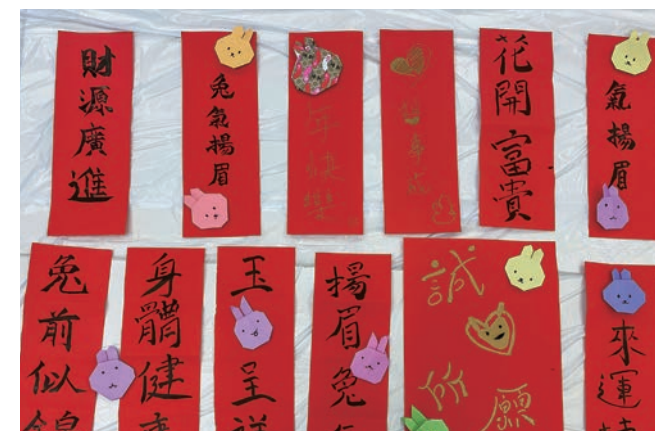 財源廣進
兔氣揚眉
年快樂
想事成
花開富貴
氣揚眉
兔前似錦
身體健康
玉呈祥
揚眉兔氣
誠所願
來運轉